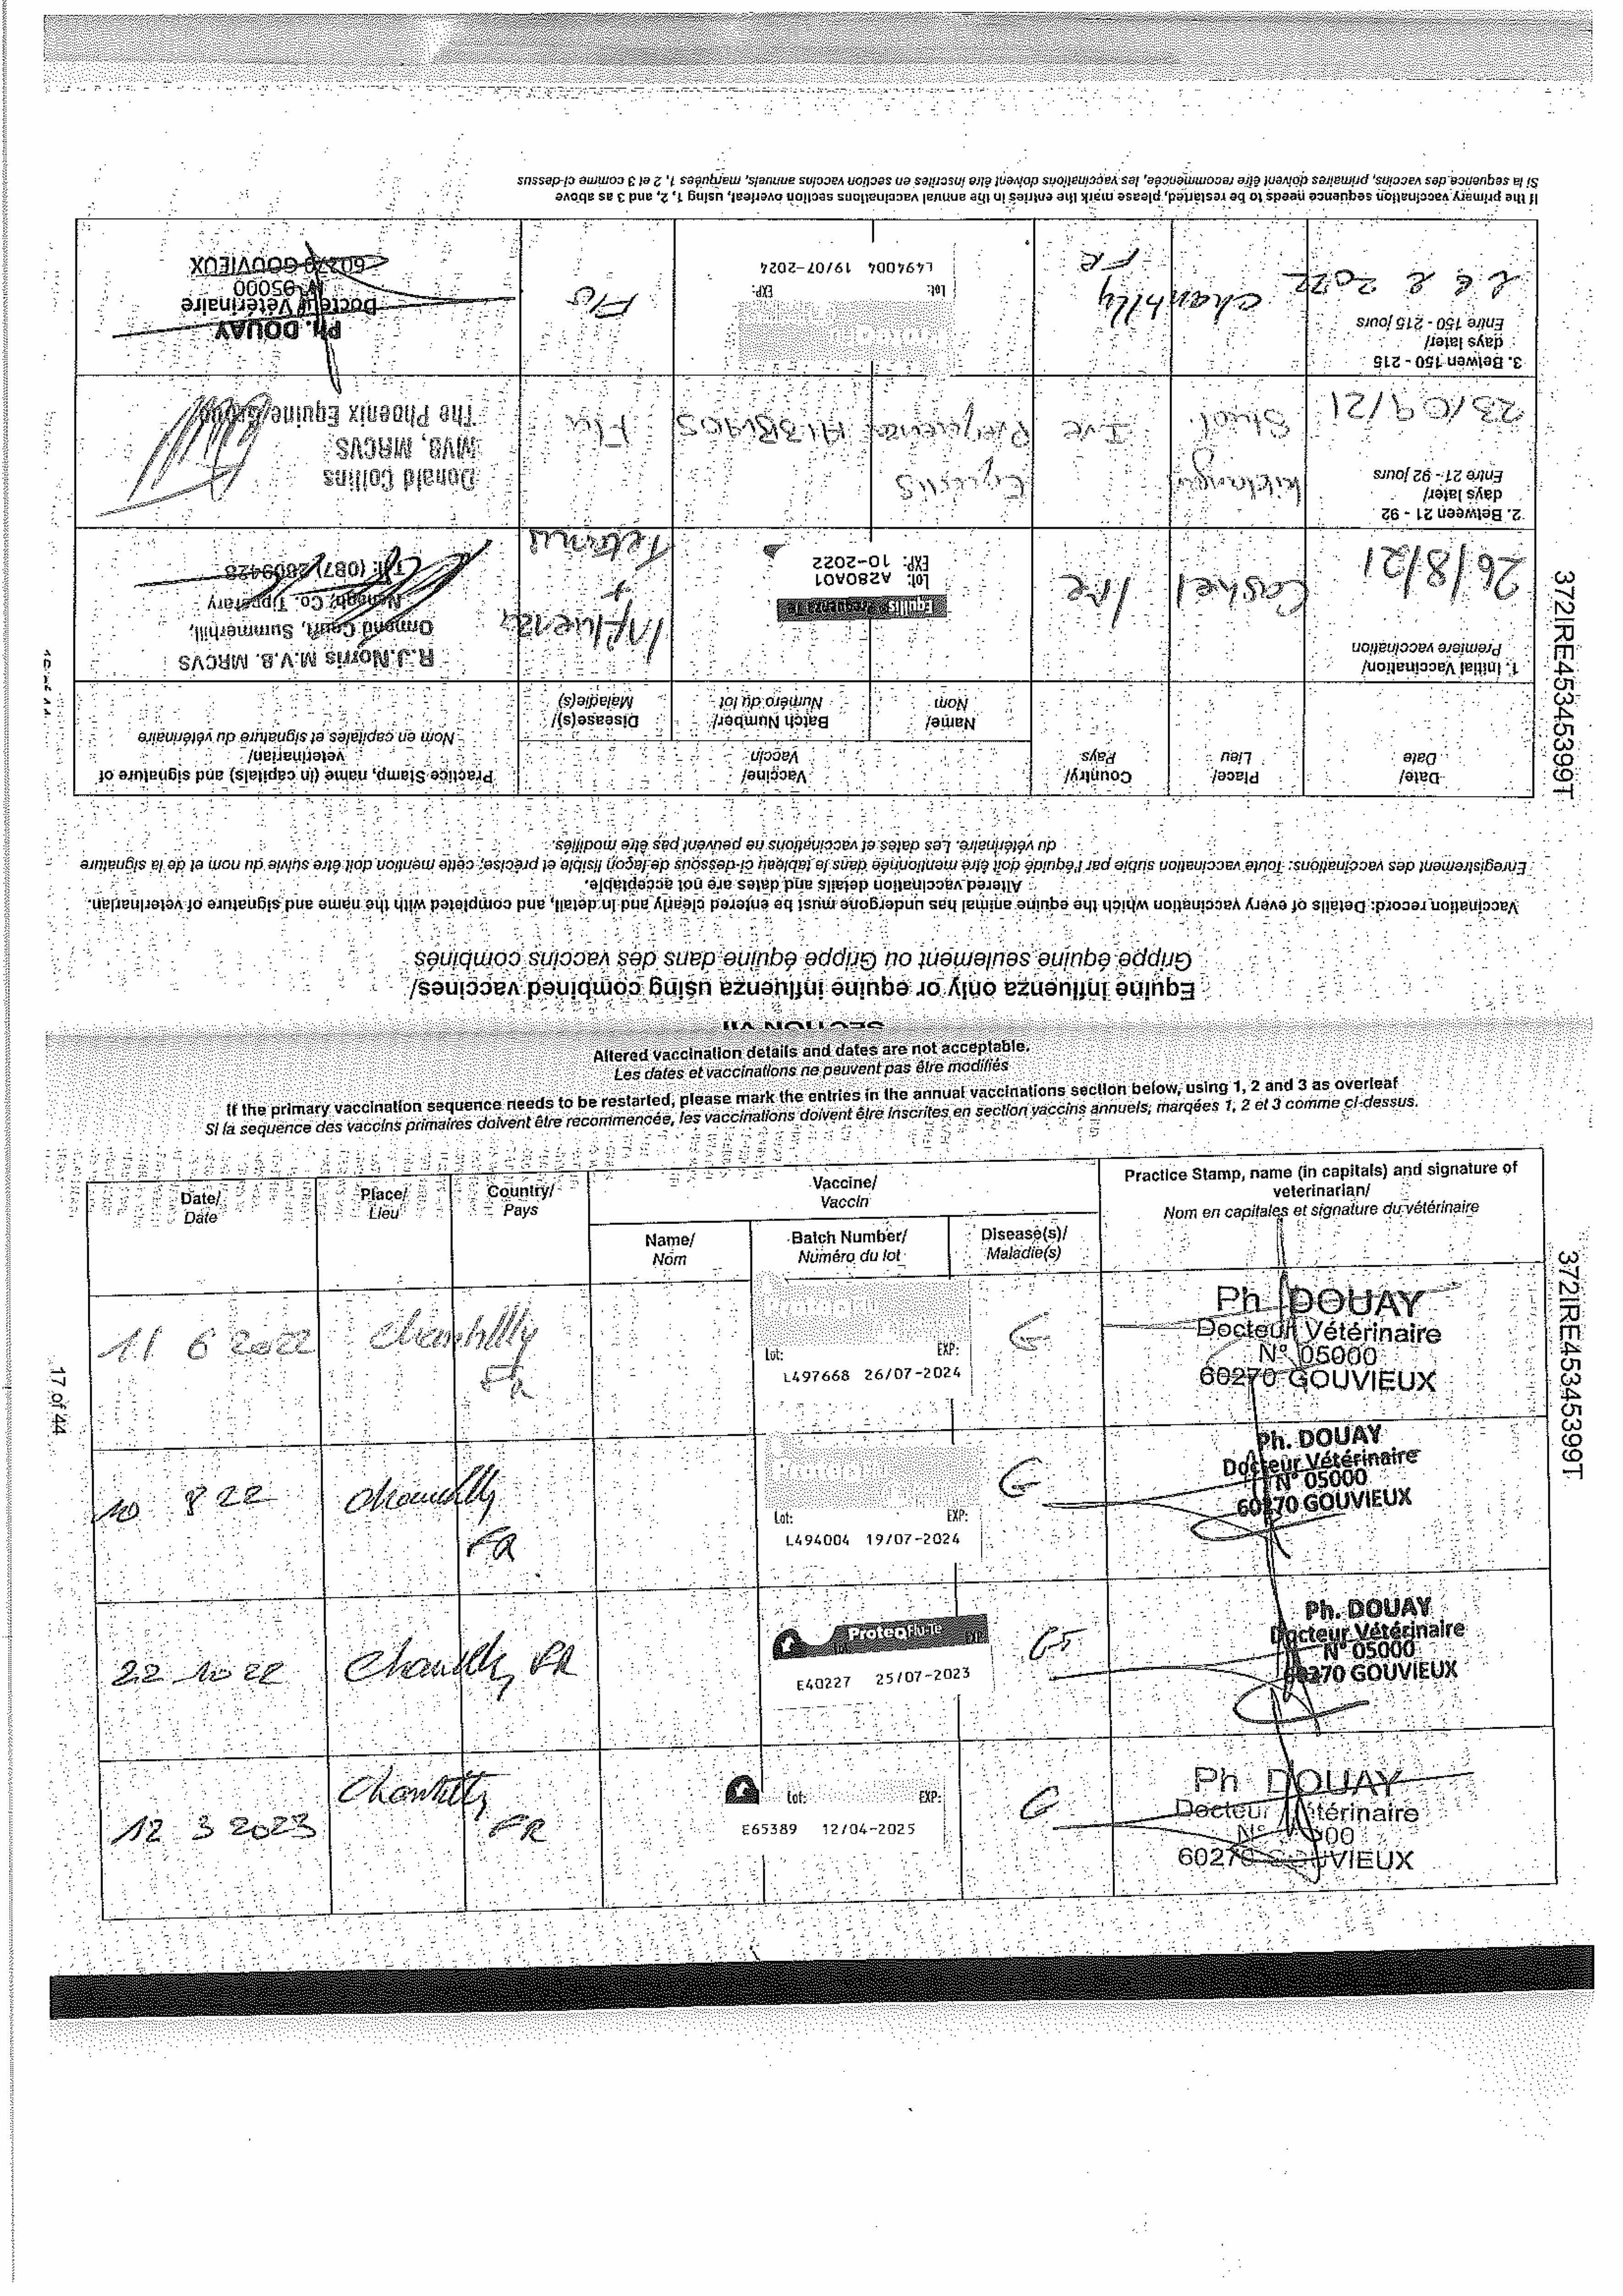 SECTION VII
Equine influenza only or equine influenza using combined vaccines/
Grippe équine seulement ou Grippe équine dans des vaccins combinés
Vaccination record: Details of every vaccination which the equine animal has undergone must be entered clearly and in detail, and completed with the name and signature of veterinarian.
Altered vaccination details and dates are not acceptable.
Enregistrement des vaccinations: Toute vaccination subie par l'équidé doit être mentionnée dans le tableau ci-dessous de façon lisible et précise, cette mention doit être suivie du nom et de la signature
du vétérinaire. Les dates et vaccinations ne peuvent pas être modifiés.
372IRE45345399T
Date/
Date
Place/
Lieu
Country/
Pays
Vaccine/
Vaccin
Name/
Nom
Batch Number/
Numéro du lot
Disease(s)/
Maladie(s)
Practice Stamp, name (in capitals) and signature of
veterinarian/
Nom en capitales et signature du vétérinaire
1. Initial Vaccination/
Première vaccination
26/8/21
Cashel
Ire
Equilis Prequenza Te
Lot: A280A01
EXP: 10-2022
Influenza
+
Tetanus
R.J. Norris M.V.B. MRCVS
Ormond Court, Summerhill,
Nenagh, Co. Tipperary
Tel: (087) 2609428
2. Between 21 - 92
days later/
Entre 21 - 92 jours
23/09/21
Kildangan
Stud
Ire
Equilis
Prequenza
A138A05
Flu
Donald Collins
MVB, MRCVS
The Phoenix Equine Group
3. Betwen 150 - 215
days later/
Entre 150 - 215 jours
2022
Chantilly
FR
ProteqFlu
Lot: EXP:
L494004 19/07-2024
Flu
Ph. DOUAY
Docteur Vétérinaire
N° 05000
60270 GOUVIEUX
If the primary vaccination sequence needs to be restarted, please mark the entries in the annual vaccinations section overleaf, using 1, 2, and 3 as above
Si la sequence des vaccins, primaires doivent être recommencée, les vaccinations doivent être inscrites en section vaccins annuels, marquées 1, 2 et 3 comme ci-dessus
Altered vaccination details and dates are not acceptable.
Les dates et vaccinations ne peuvent pas être modifiés
If the primary vaccination sequence needs to be restarted, please mark the entries in the annual vaccinations section below, using 1, 2 and 3 as overleaf
Si la sequence des vaccins primaires doivent être recommencée, les vaccinations doivent être inscrites en section vaccins annuels, marqées 1, 2 et 3 comme ci-dessus.
372IRE45345399T
Date/
Date
Place/
Lieu
Country/
Pays
Vaccine/
Vaccin
Name/
Nom
Batch Number/
Numéro du lot
Disease(s)/
Maladie(s)
Practice Stamp, name (in capitals) and signature of
veterinarian/
Nom en capitales et signature du vétérinaire
11 6 2022
Chantilly
FR
Proteq
Lot: EXP:
L497668 26/07-2024
G
Ph DOUAY
Docteur Vétérinaire
N° 05000
60270 GOUVIEUX
10 8 22
Chantilly
FR
Proteq
Lot: EXP:
L494004 19/07-2024
G
Ph. DOUAY
Docteur Vétérinaire
N° 05000
60270 GOUVIEUX
22 10 22
Chantilly FR
ProteqFlu-Te
Lot: EXP:
E40227 25/07-2023
GT
Ph. DOUAY
Docteur Vétérinaire
N° 05000
60270 GOUVIEUX
12 3 2023
Chantilly
FR
Lot: EXP:
E65389 12/04-2025
G
Ph DOUAY
Docteur Vétérinaire
N° 05000
60270 GOUVIEUX
17 of 44